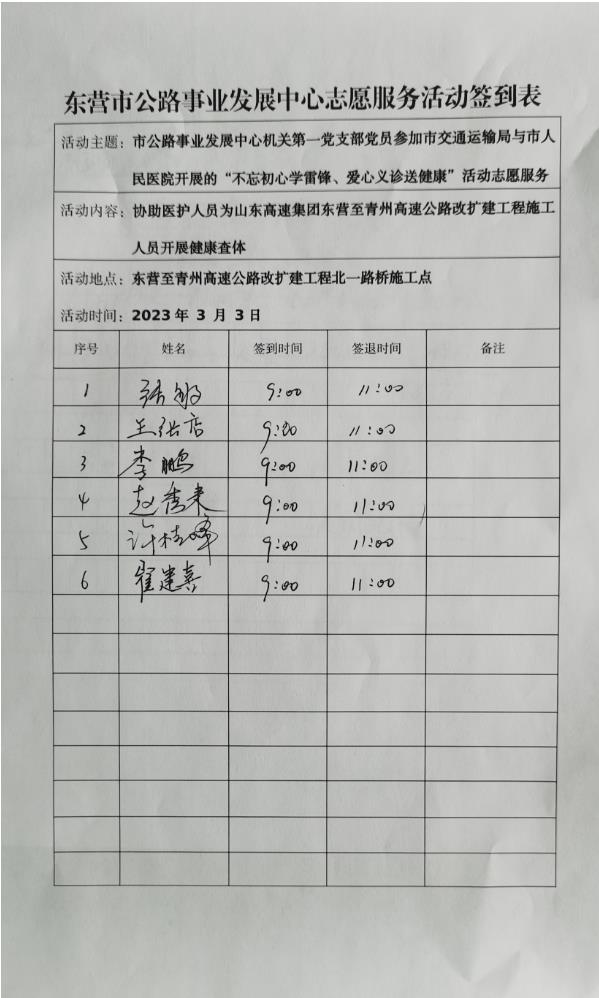 东营市公路事业发展中心志愿服务活动签到表
活动主题：市公路事业发展中心机关第一党支部党员参加市交通运输局与市人
民医院开展的“不忘初心学雷锋、爱心义诊送健康”活动志愿服务
活动内容：协助医护人员为山东高速集团东营至青州高速公路改扩建工程施工
人员开展健康查体
活动地点：东营至青州高速公路改扩建工程北一路桥施工点
活动时间：2023 年 3 月 3 日
序号 姓名 签到时间 签退时间 备注
1 9:00 11:00
2 9:00 11:00
3 李鹏 9:00 11:00
4 赵秀来 9:00 11:00
5 许桂峰 9:00 11:00
6 翟建嘉 9:00 11:00